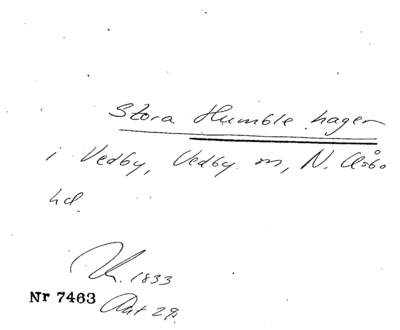 Stora Humble hagen
i Vedby, Vedby sn, N. Åsbo
hd.
1833
Nr 7463 Akt 29